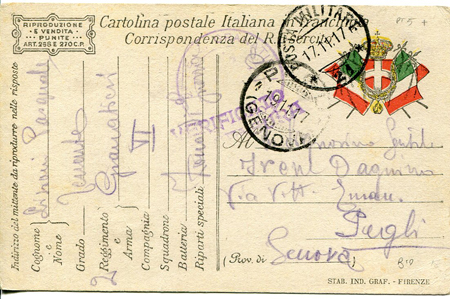 RIPRODUZIONE
E VENDITA
PUNITE
ART. 285 E 270 C.P.
Cartolina postale Italiana in Franchigia
Corrispondenza del R. Esercito
POSTA MILITARE
17.11.17
PEGLI
19.11.17
(GENOVA)
VERIFICATO
Indirizzo del mittente da riprodurre nelle risposte
Cognome e Nome
Pasquale
Grado
Tenente
Reggimento e Arma
2 Granatieri
Compagnia
VI
Squadrone
Batteria
Riparti speciali
Zona di guerra
Al Signorino Gentile
Irene Dagnino
Via Vitt. Eman.
Pegli
(Prov. di Genova)
STAB. IND. GRAF. - FIRENZE